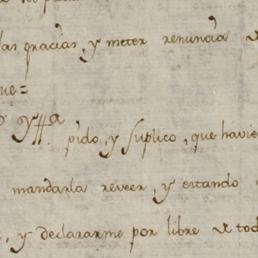 las gracias, y meter renuncia de
ue=
pido, y suplico, que havie
mandarla reveer, y estando
y declararme por libre de tod